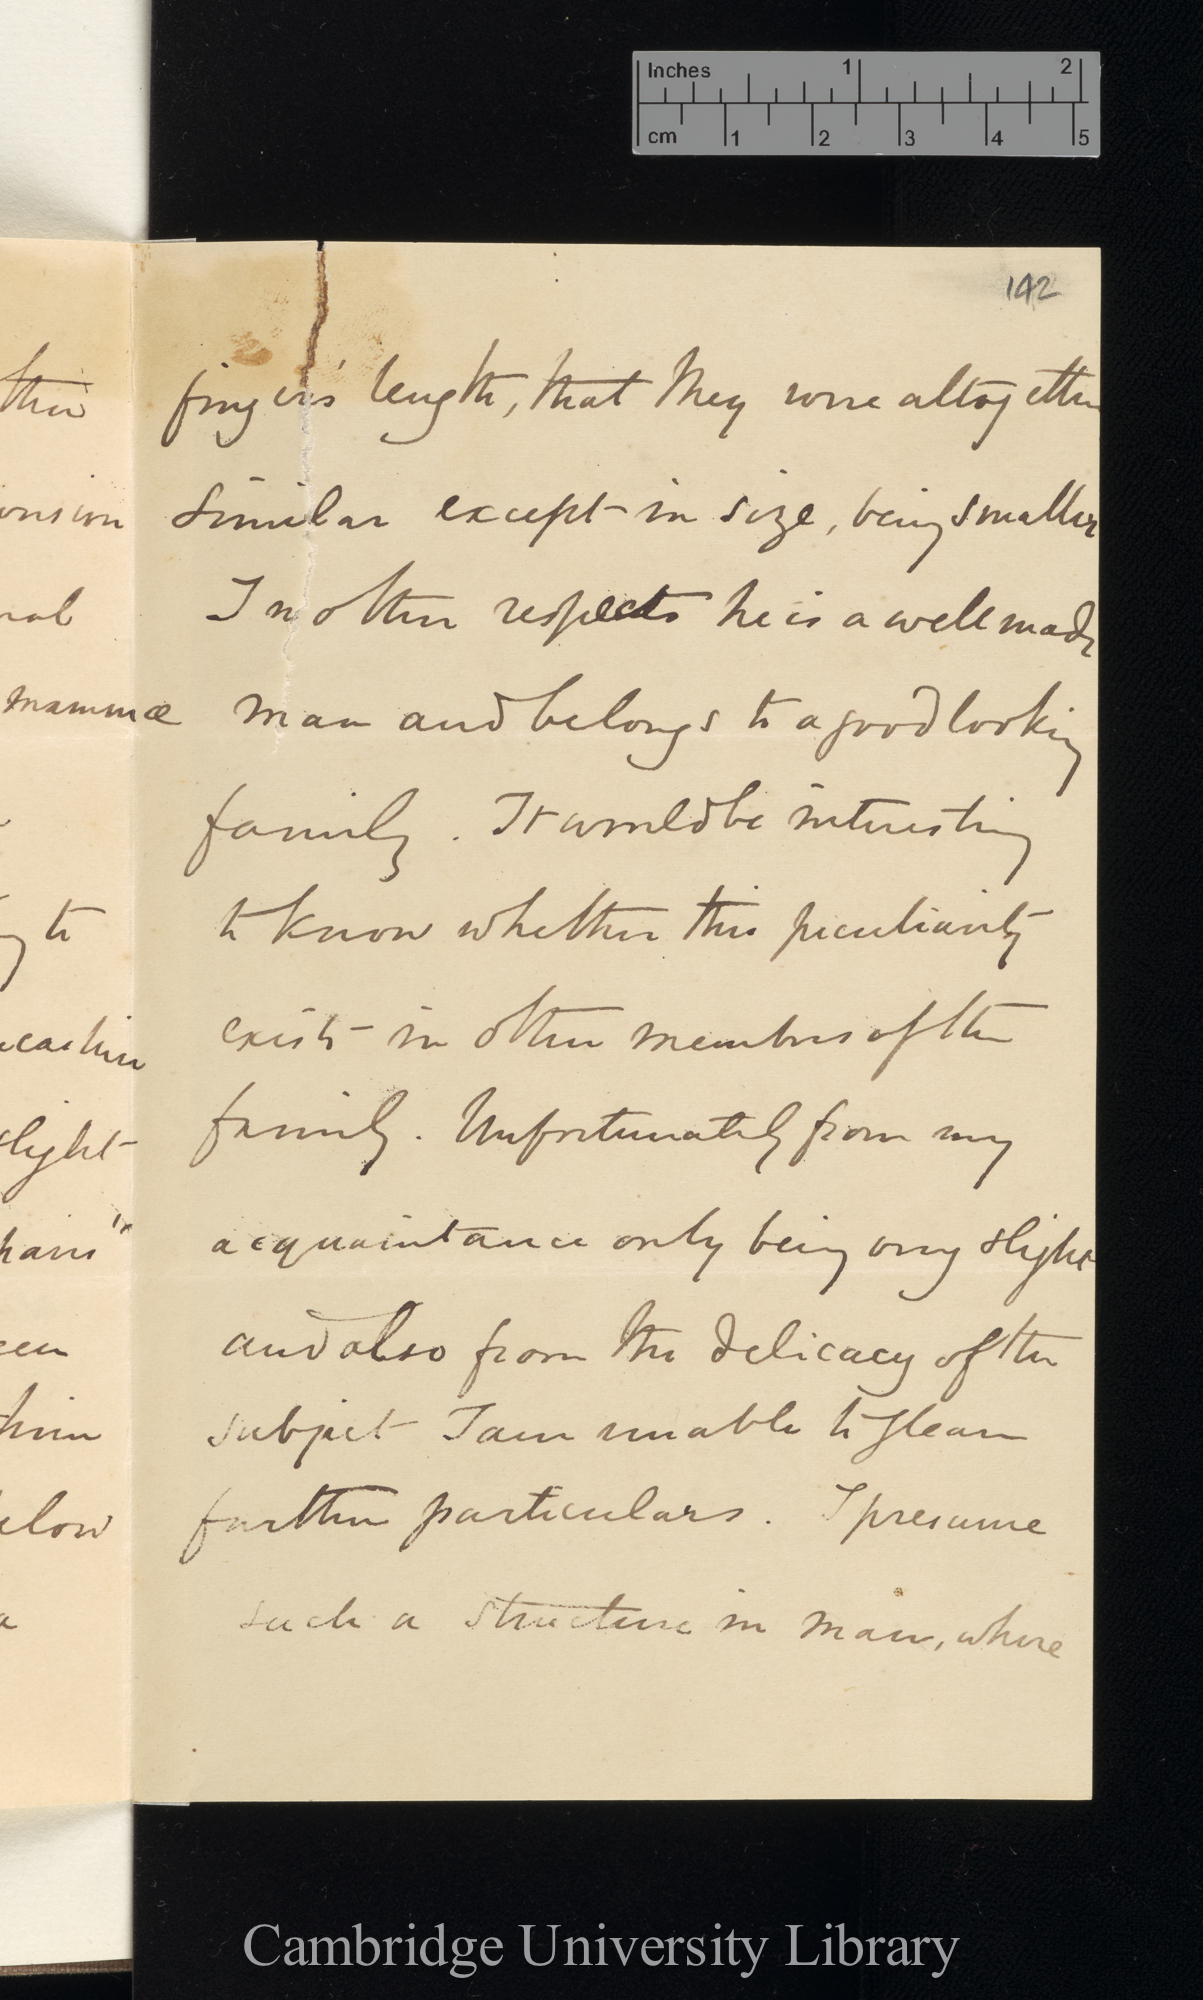 Inches 1 2
cm 1 2 3 4 5
142
finger's length, that they were altogether
similar except in size, being smaller
In other respects he is a well made
man and belongs to a good looking
family. It would be interesting
to know whether this peculiarity
exists in other members of the
family. Unfortunately from my
acquaintance only being very slight
and also from the delicacy of the
subject I am unable to glean
further particulars. I presume
such a structure in man, where
mammæ
to
slight
hairs"
him
a
Cambridge University Library